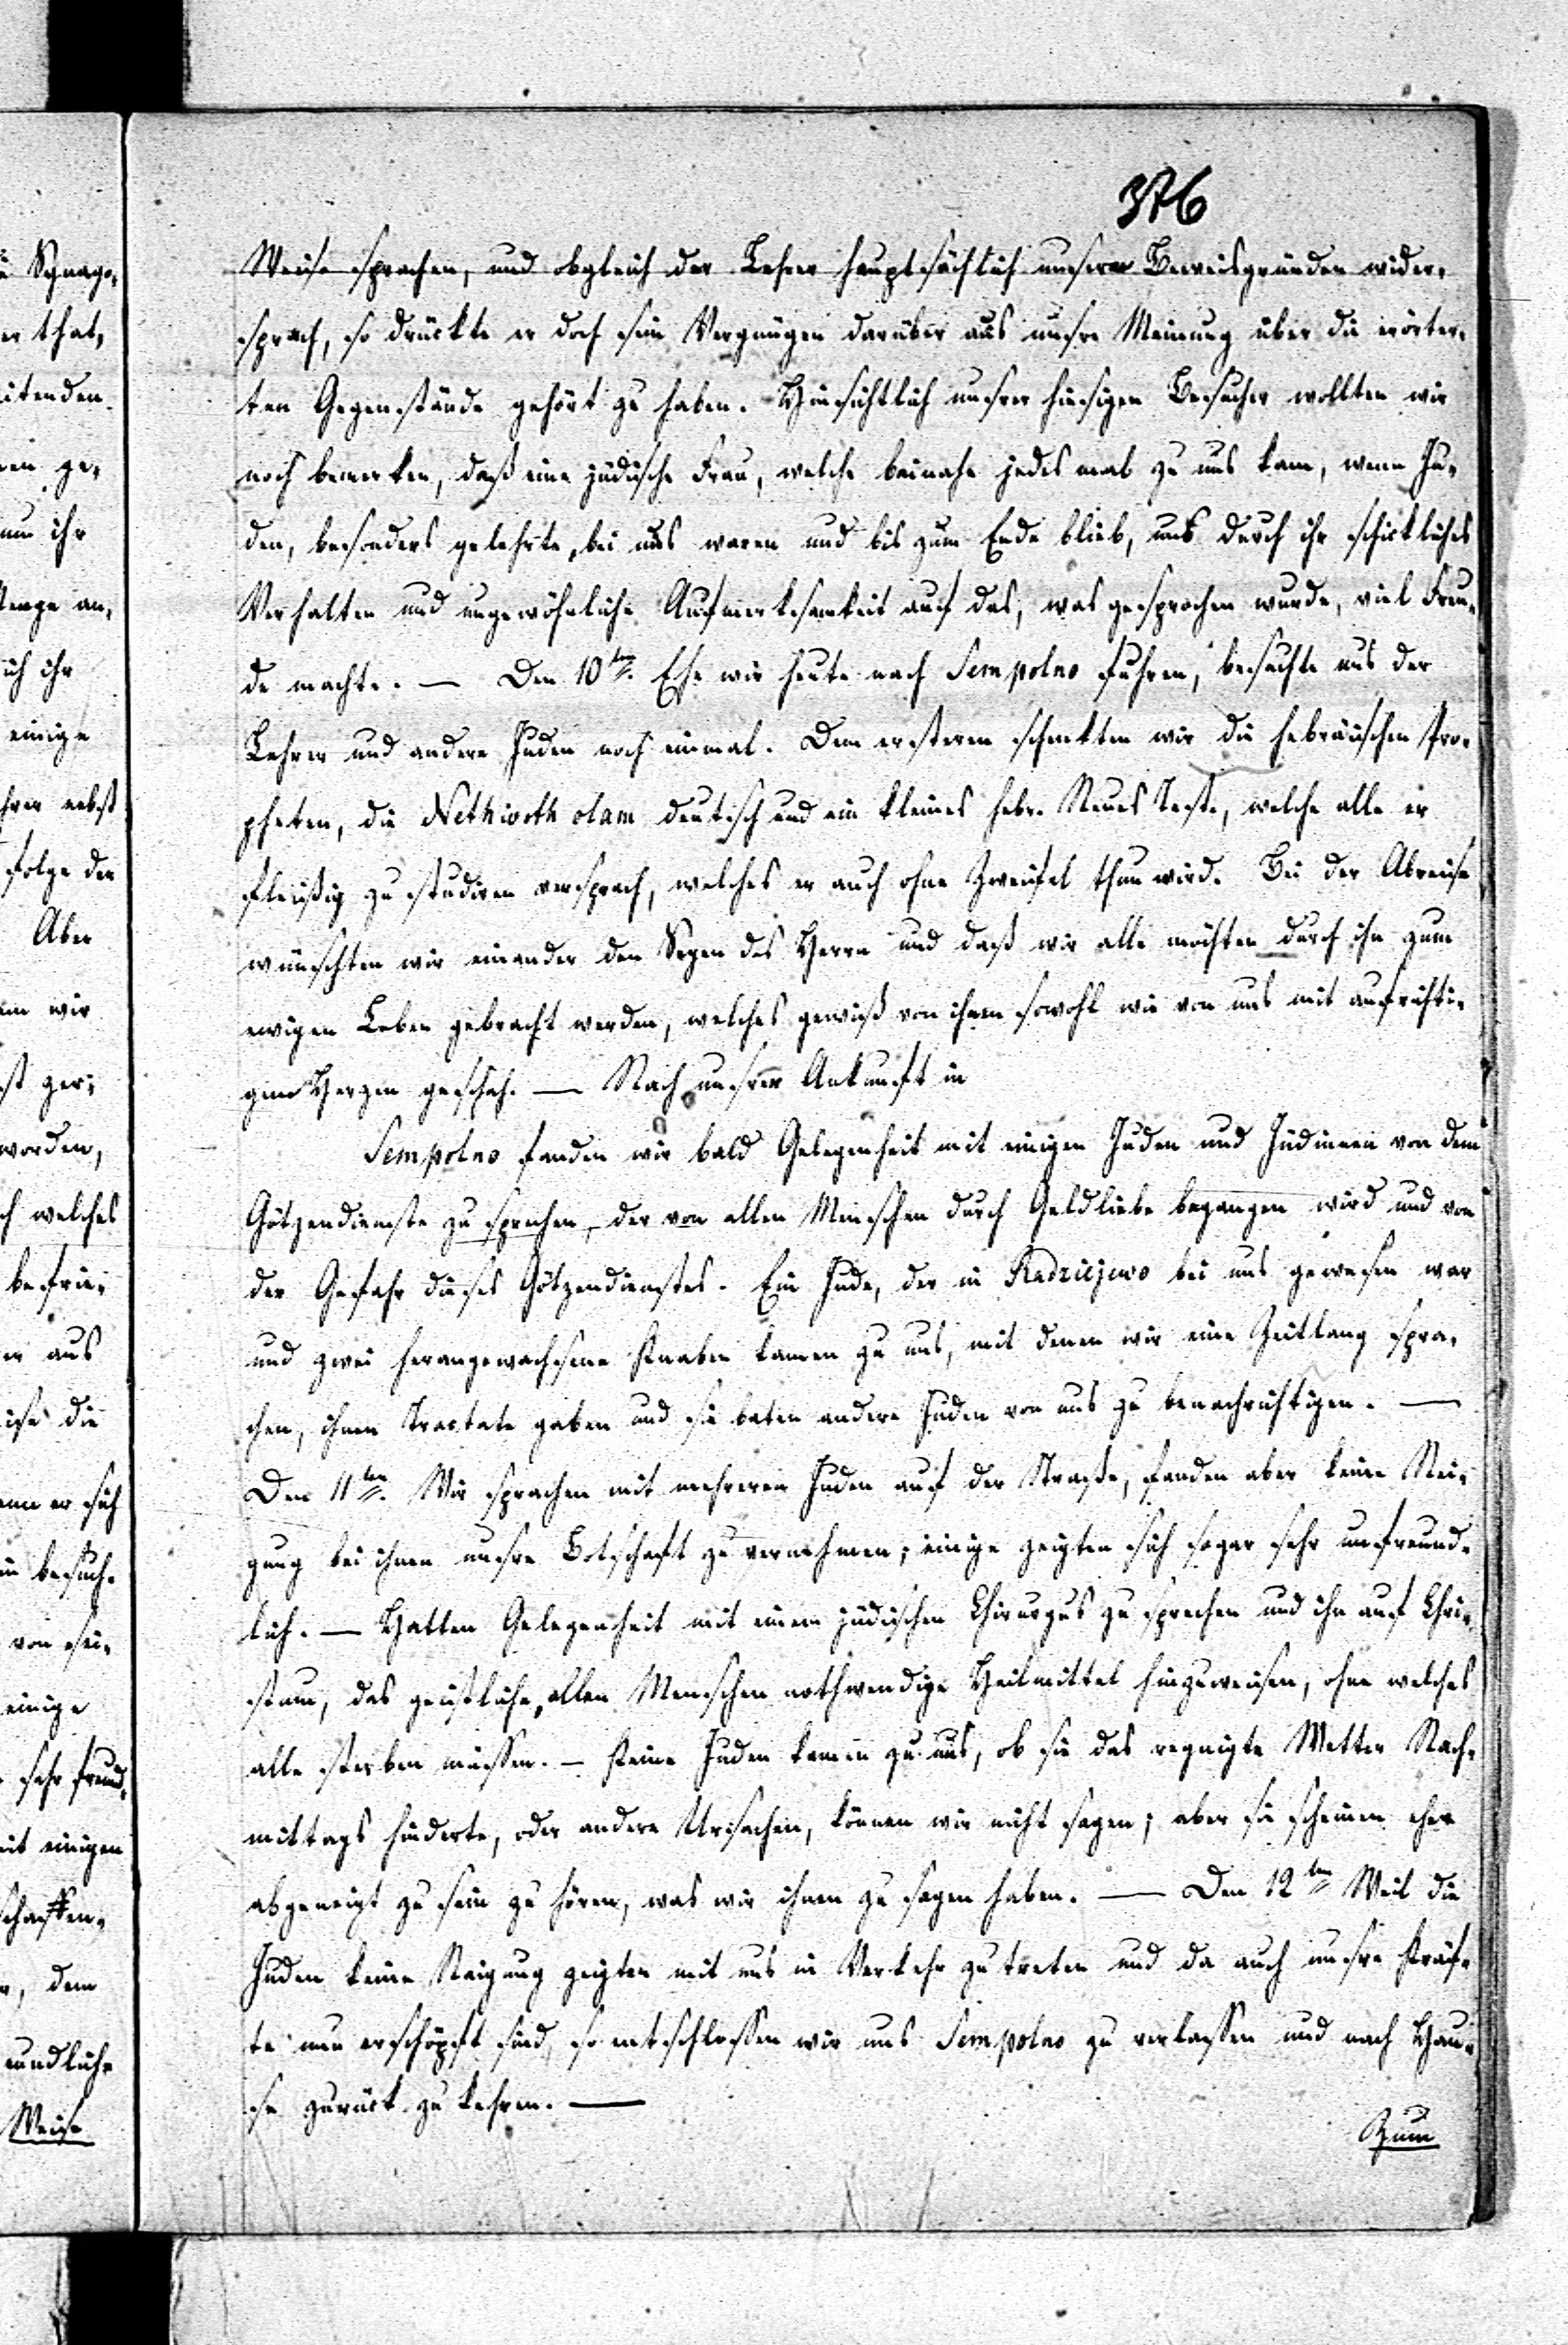 376
Weise sprachen, und obgleich der Lehrer hauptsächlich unsern Beweisgründen wider-
sprach, so drückte er doch sein Vergnügen darüber aus unsre Meinung über die erörter-
ten Gegenstände gehört zu haben. Hinsichtlich unsrer hiesigen Besucher wollten wir
noch bemerken, daß eine jüdische Frau, welche beinahe jedes mal zu uns kam, wenn Ju-
den, besonders gelehrte, bei uns waren und bis zum Ende blieb, uns durch ihr schickliches
Verhalten und ungewöhnliche Aufmerksamkeit auf das, was gesprochen wurde, viel Freu-
de machte. — Den 10ten. Ehe wir heute nach Sempolno fuhren, besuchte uns der
Lehrer und andere Juden noch einmal. Dem ersteren schenkten wir die hebräischen Pro-
pheten, die Nethivoth olam deutsch und ein kleines hebr. Neues Test., welche alle er
fleißig zu studiren versprach, welches er auch ohne Zweifel thun wird. Bei der Abreise
wünschten wir einander den Segen des Herrn und daß wir alle möchten durch ihn zum
ewigen Leben gebracht werden, welches gewiß von ihnen sowohl wie von uns mit aufrichti-
gem Herzen geschah. — Nach unsrer Ankunft in
Sempolno fanden wir bald Gelegenheit mit einigen Juden und Jüdinnen von dem
Götzendienste zu sprechen, der von allen Menschen durch Geldliebe begangen wird und von
der Gefahr dieses Götzendienstes. Ein Jude, der in Radziejewo bei uns gewesen war
und zwei herangewachsene Knaben kamen zu uns, mit denen wir eine Zeitlang spra-
chen, ihnen Tractate gaben und sie baten andere Juden von uns zu benachrichtigen. —
Den 11ten. Wir sprachen mit mehreren Juden auf der Straße, fanden aber keine Nei-
gung bei ihnen unsre Botschaft zu vernehmen; einige zeigten sich sogar sehr unfreund-
lich. — Hatten Gelegenheit mit einem jüdischen Chirurgus zu sprechen und ihn auf Chri-
stum, das geistliche, allen Menschen nothwendige Heilmittel hinzuweisen, ohne welches
alle sterben müssen. — Keine Juden kamen zu uns, ob sie das regnigte Wetter Nach-
mittags hinderte, oder andere Ursachen, können wir nicht sagen; aber sie scheinen eher
abgeneigt zu sein zu hören, was wir ihnen zu sagen haben. — Den 12ten Weil die
Juden keine Neigung zeigten mit uns in Verkehr zu treten und da auch unsre Kräf-
te nun erschöpft sind, so entschlossen wir uns Sempolno zu verlassen und nach Hau-
se zurück zu kehren. —
Zum